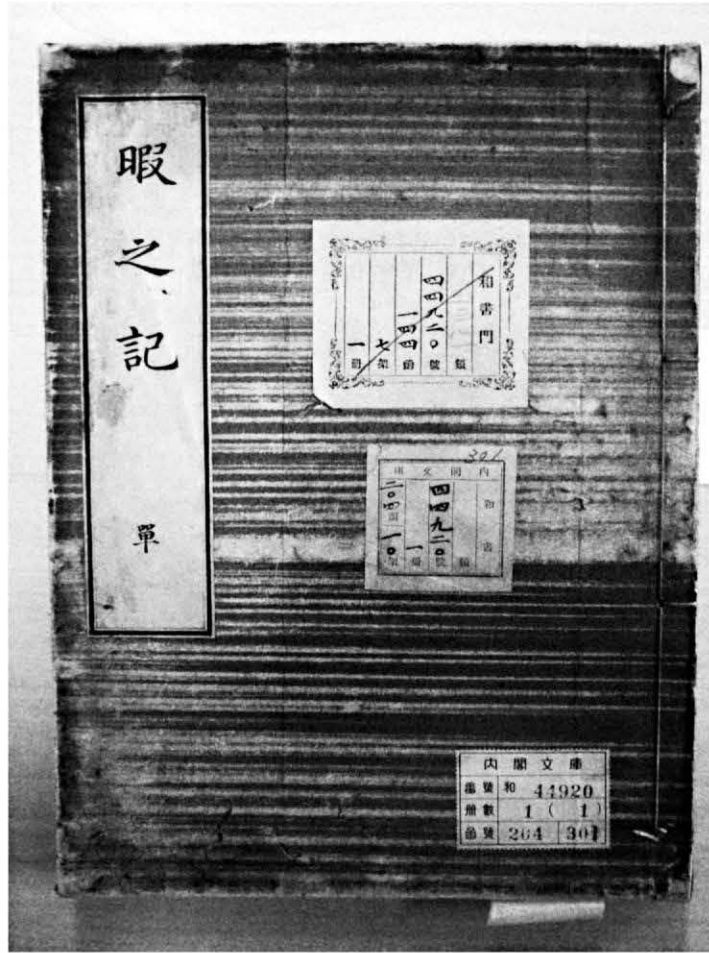 暇之記
單
和書門
類
四四九二〇號
一四四函
七架
一冊
301
内閣文庫
和書
類
四四九二〇號
一冊
二〇四函
一〇架
内閣文庫
番號 和 44920
冊數 1 ( 1 )
函號 204 301